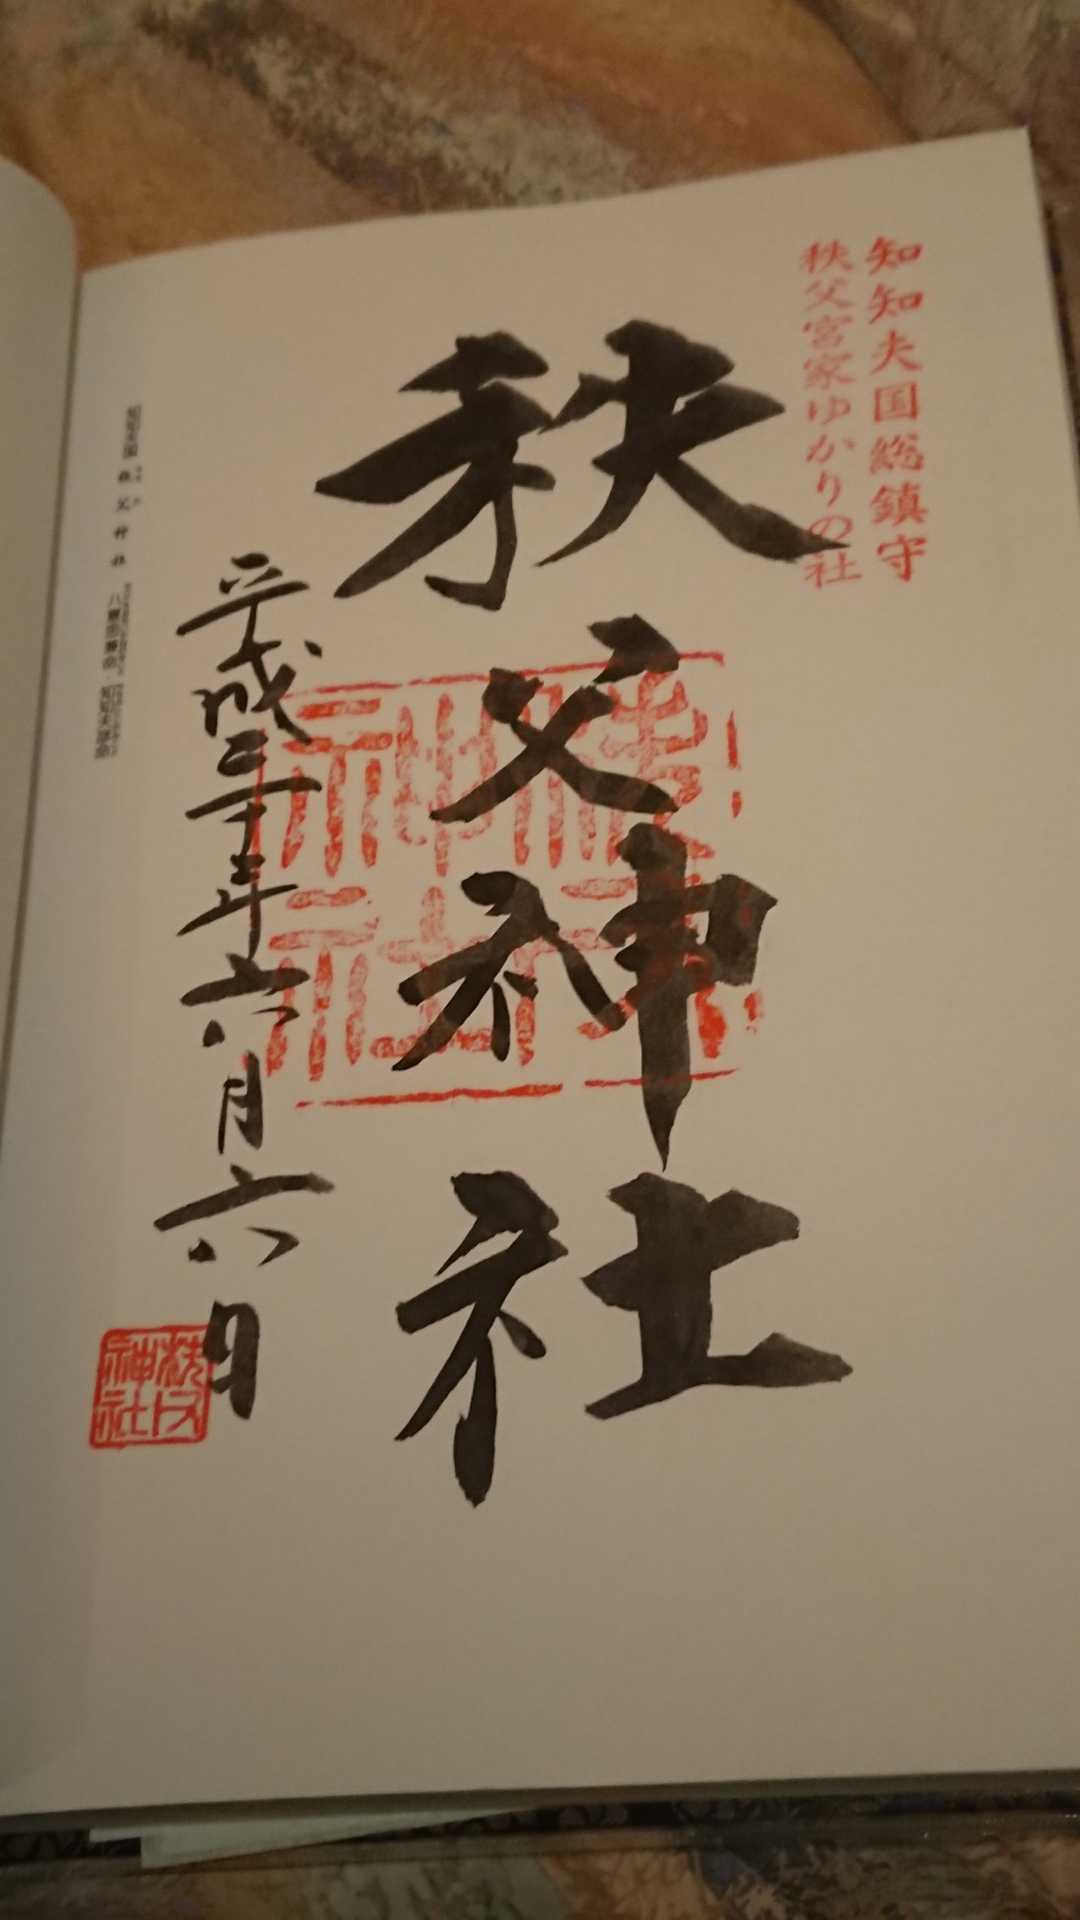 知知夫国総鎮守
秩父宮家ゆかりの社
秩父神社
平成三十年六月六日
秩父神社
秩父神社
知知夫国 秩父神社